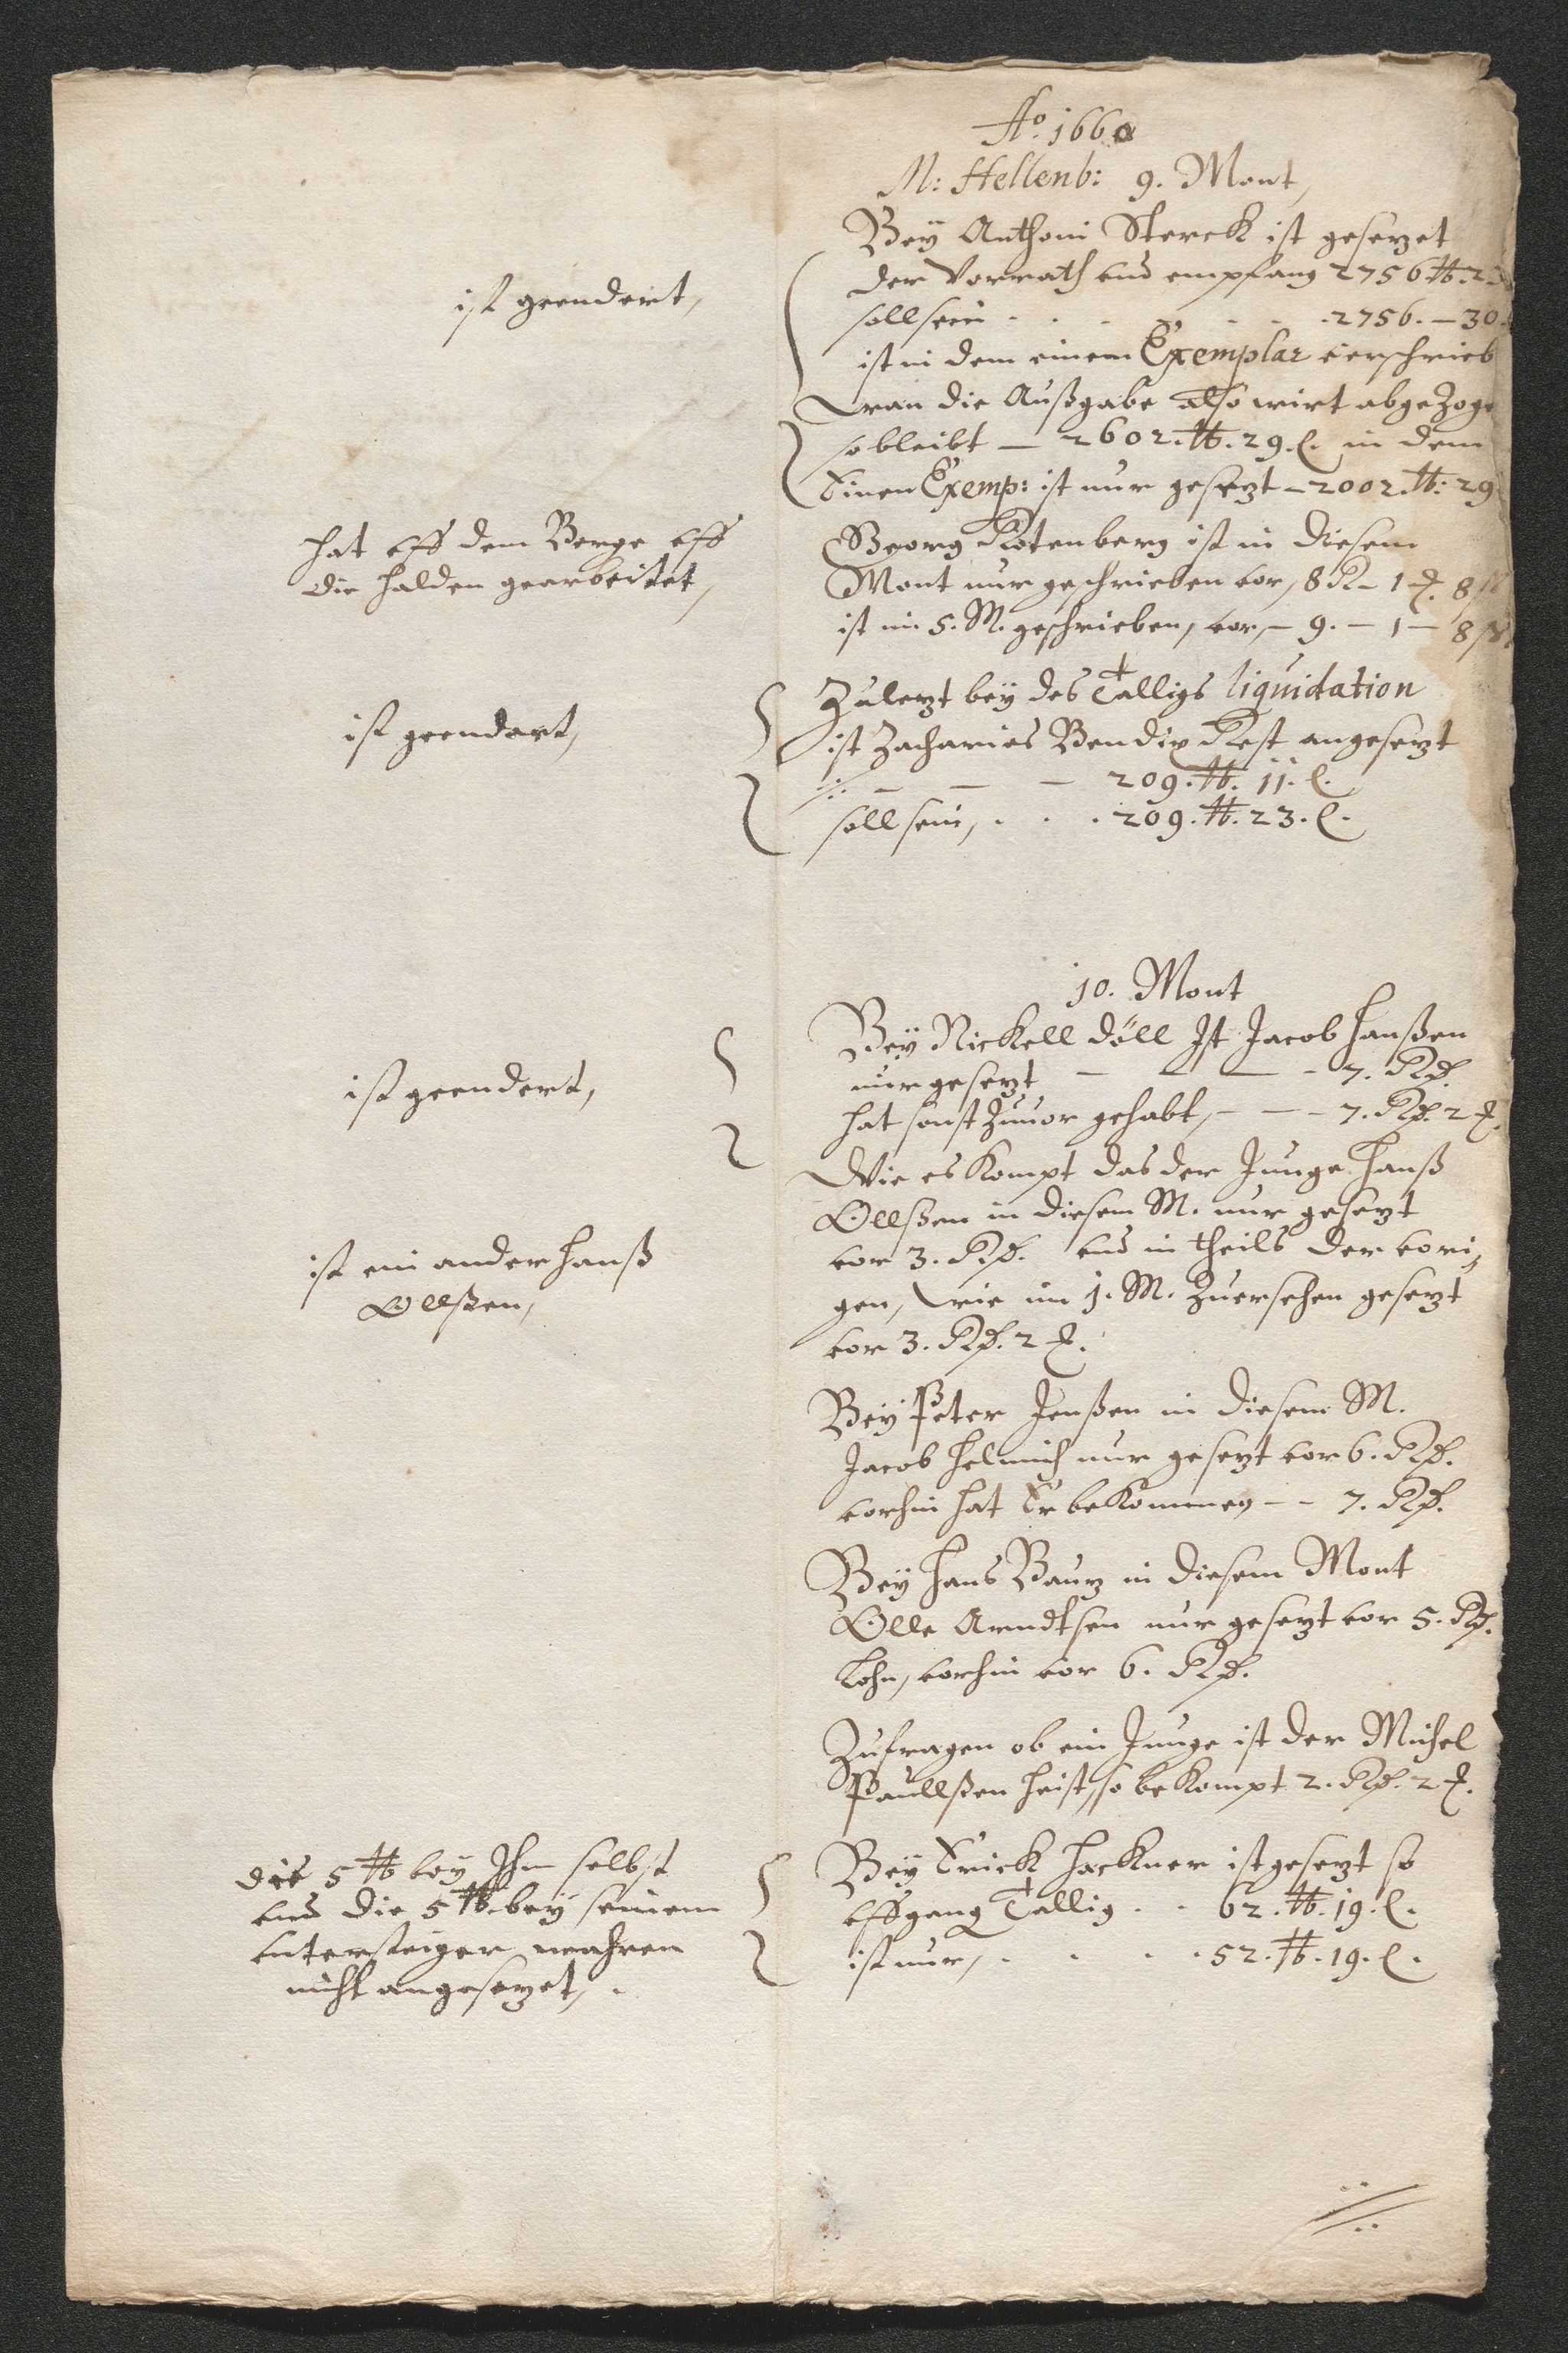 Ao. 1660
M: Hellenb: 9. Mont,
Bey Anthoni Sterck ist gesezet
der Vorrath und empfang 2756 ℔. 2
soll sein - - - - - - 2756. — 30.
ist in dem einem Exemplar verschrieb
ist geendert,
wan die Außgabe also wirt abgezoge
so bleibt — 2602. ℔. 29. l. in dem
Einen Exemp: ist nur gesezt — 2002. ℔: 29
Georg Rotenberg ist in diesem
Mont nur geschrieben vor, 8 R – 1 . 8 ß
ist im 5. M. geschrieben, vor, – 9. – 1 – 8 ß
hat uff dem Berge uff
die halden gearbeitet,
Zulezt bey des Talligs liquidation
ist Zacharies Bendix Rest angesezt
./. – – – 209. ℔. 11. l.
soll sein, . . . 209. ℔. 23. l.
ist geendert,
10. Mont
Bey Nickell döll Ist Jacob Hanßen
nur gesezt – – – – 7. Rd.
hat sonst zuvor gehabt, – – – 7. Rd. 2
ist geendert,
Wie es kompt das der Junge Hanß
Ollßen in diesem M. nur gesezt
vor 3. Rd. und in theils der vori,
gen, wie im 1. M. zuersehen gesezt
vor 3. Rd. 2
ist ein ander Hanß
Ollßen,
Bey Peter Jenßen in diesem M.
Jacob Helmich nur gesezt vor 6. Rd.
vorhin hat Er bekommen – – 7. Rd.
Bey Hans Bautz in diesem Mont
Olle Arndtsen nur gesezt vor 5. Rd.
Lohn, vorhin vor 6. Rd.
Zufragen ob ein Junge ist der Michel
Paullßen heist, so bekompt 2. Rd. 2
Bey Erick Hackner ist gesezt so
uffgang Tallig . . 62. ℔. 19. l.
ist nur, . . . . 52. ℔. 19. l.
die 5 ℔ bey Ihm selbst
und die 5 ℔. bey seinem
untersteiger wahren
nicht angesezet,